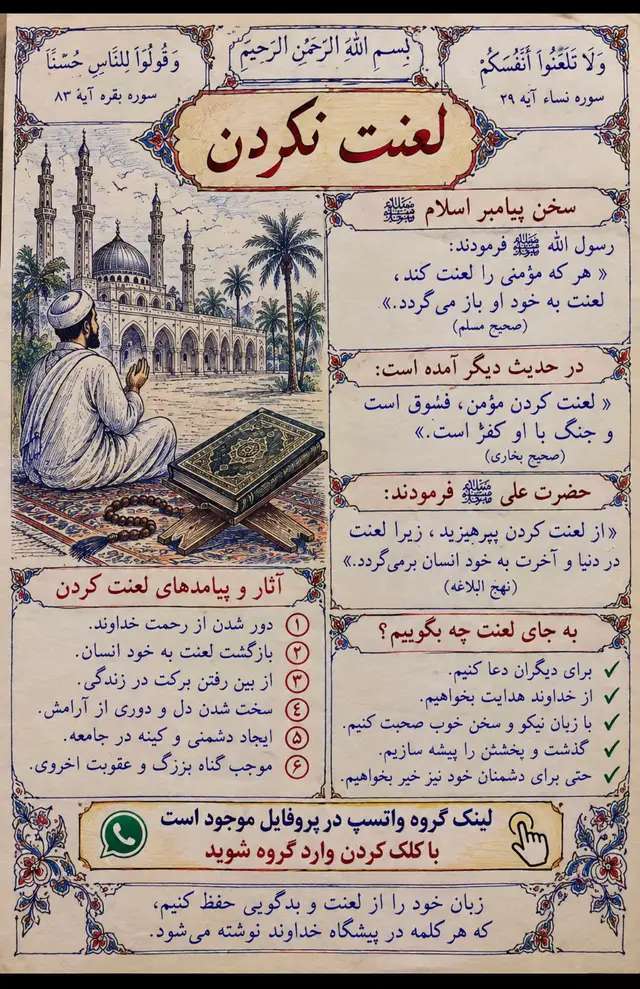 وَلَا تَلْعَنُوا أَنْفُسَكُمْ
سوره نساء آیه ۲۹
بِسمِ اللهِ الرَّحمٰنِ الرَّحیمِ
وَقُولُوا لِلنَّاسِ حُسْنًا
سوره بقره آیهٔ ۸۳
لعنت نکردن
سخن پیامبر اسلام ﷺ
رسول الله ﷺ فرمودند:
« هر که مؤمنی را لعنت کند،
لعنت به خود او باز می‌گردد.»
(صحیح مسلم)
در حدیث دیگر آمده است:
« لعنت کردن مؤمن، فسُوق است
و جنگ با او کفرْ است.»
(صحیح بخاری)
حضرت علی ﷺ فرمودند:
« از لعنت کردن بپرهیزید، زیرا لعنت
در دنیا و آخرت به خود انسان برمی‌گردد.»
(نهج البلاغه)
به جای لعنت چه بگوییم؟
✓ برای دیگران دعا کنیم.
✓ از خداوند هدایت بخواهیم.
✓ با زبان نیکو و سخن خوب صحبت کنیم.
✓ گذشت و پخشش را پیشه سازیم.
✓ حتی برای دشمنان خود نیز خیر بخواهیم.
آثار و پیامدهای لعنت کردن
۱ دور شدن از رحمت خداوند.
۲ بازگشت لعنت به خود انسان.
۳ از بین رفتن برکت در زندگی.
۴ سخت شدن دل و دوری از آرامش.
۵ ایجاد دشمنی و کینه در جامعه.
۶ موجب گناه بزرگ و عقوبت اخروی.
لینک گروه واتسپ در پروفایل موجود است
با کلک کردن وارد گروه شوید
زبان خود را از لعنت و بدگویی حفظ کنیم،
که هر کلمه در پیشگاه خداوند نوشته می‌شود.